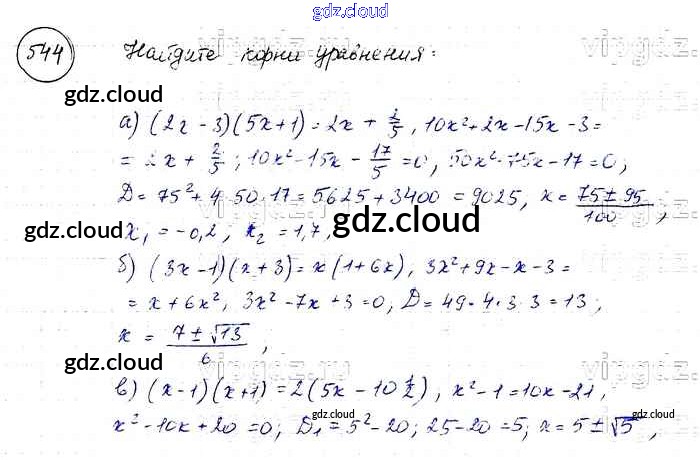 gdz.cloud
544 Найдите корни уравнения:
gdz.cloud
а) (2x - 3)(5x + 1) = 2x + 2/5, 10x² + 2x - 15x - 3 =
= 2x + 2/5; 10x² - 15x - 17/5 = 0, 50x² - 75x - 17 = 0;
D = 75² + 4·50·17 = 5625 + 3400 = 9025, x = (75 ± 95)/100,
gdz.cloud
gdz.cloud
x₁ = -0,2; x₂ = 1,7,
б) (3x - 1)(x + 3) = x(1 + 6x), 3x² + 9x - x - 3 =
= x + 6x², 3x² - 7x + 3 = 0, D = 49 - 4·3·3 = 13;
x = (7 ± √13)/6;
vipgdz.ru
gdz.cloud
gdz.cloud
в) (x - 1)(x + 1) = 2(5x - 10 1/2), x² - 1 = 10x - 21,
gdz.cloud
gdz.cloud
x² - 10x + 20 = 0; D₁ = 5² - 20; 25 - 20 = 5; x = 5 ± √5,